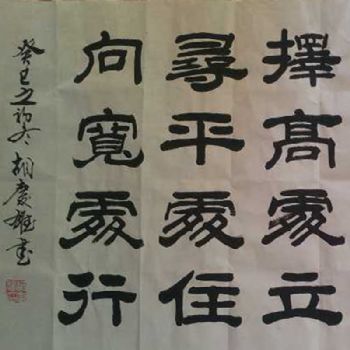 擇高處立
尋平處住
向寬處行
癸巳之初冬胡慶雄書